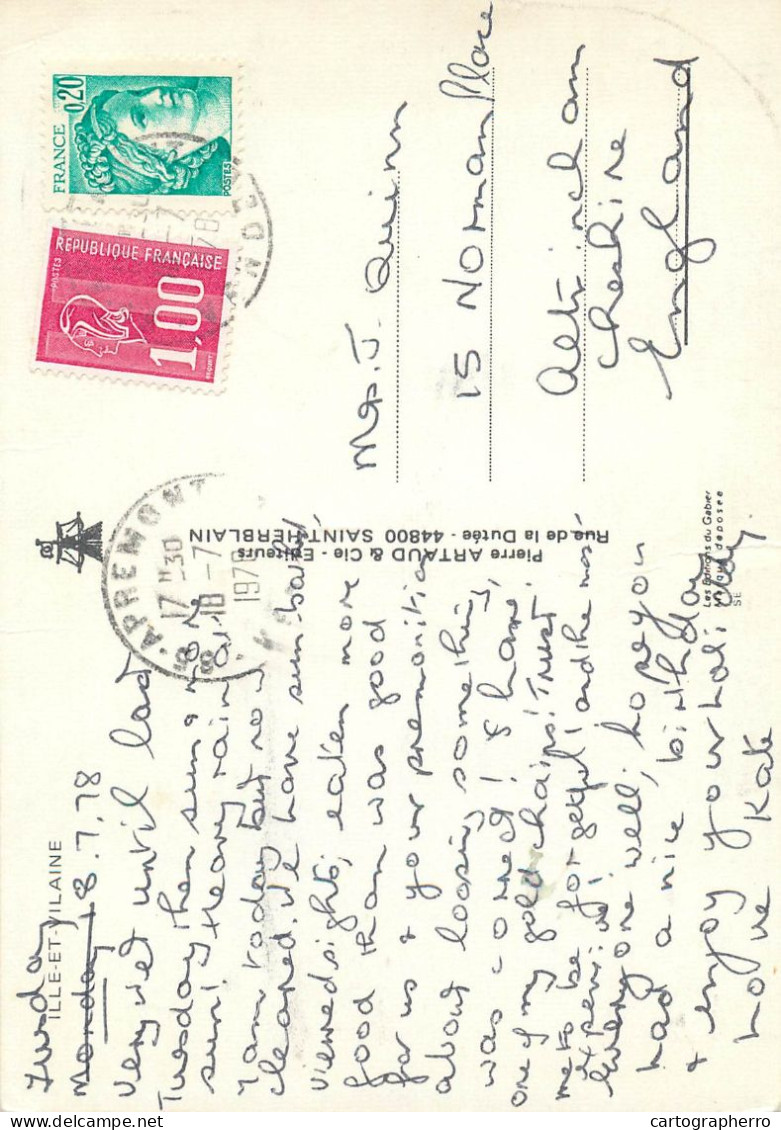 ILLE-ET-VILAINE
Tusday
Monday 18.7.78
Very wet until last
Tuesday then sun & more
sun! Heavy rain all
1am today but now
cleared. We have sun bathed
viewed sights, eaten more
good than was good
for us & your premonition
about loosing something
was correct! I have
one of my gold chains! Trust
me to be forgetful and the most
expensive!
Everyone well, hope you
had a nice birthday
& enjoy your holiday
Love Kate
Pierre ARTAUD & Cie - Editeurs
Rue de la Dutée - 44800 SAINT-HERBLAIN
Les Editions du Gabier
Marque déposée
SE
FRANCE
0,20
POSTES
REPUBLIQUE FRANÇAISE
POSTES
1,00
APREMONT
17H30
18-7
1978
Mrs. J. Quinn
15 Norman Place
Altrincham
Cheshire
England
cartographerro